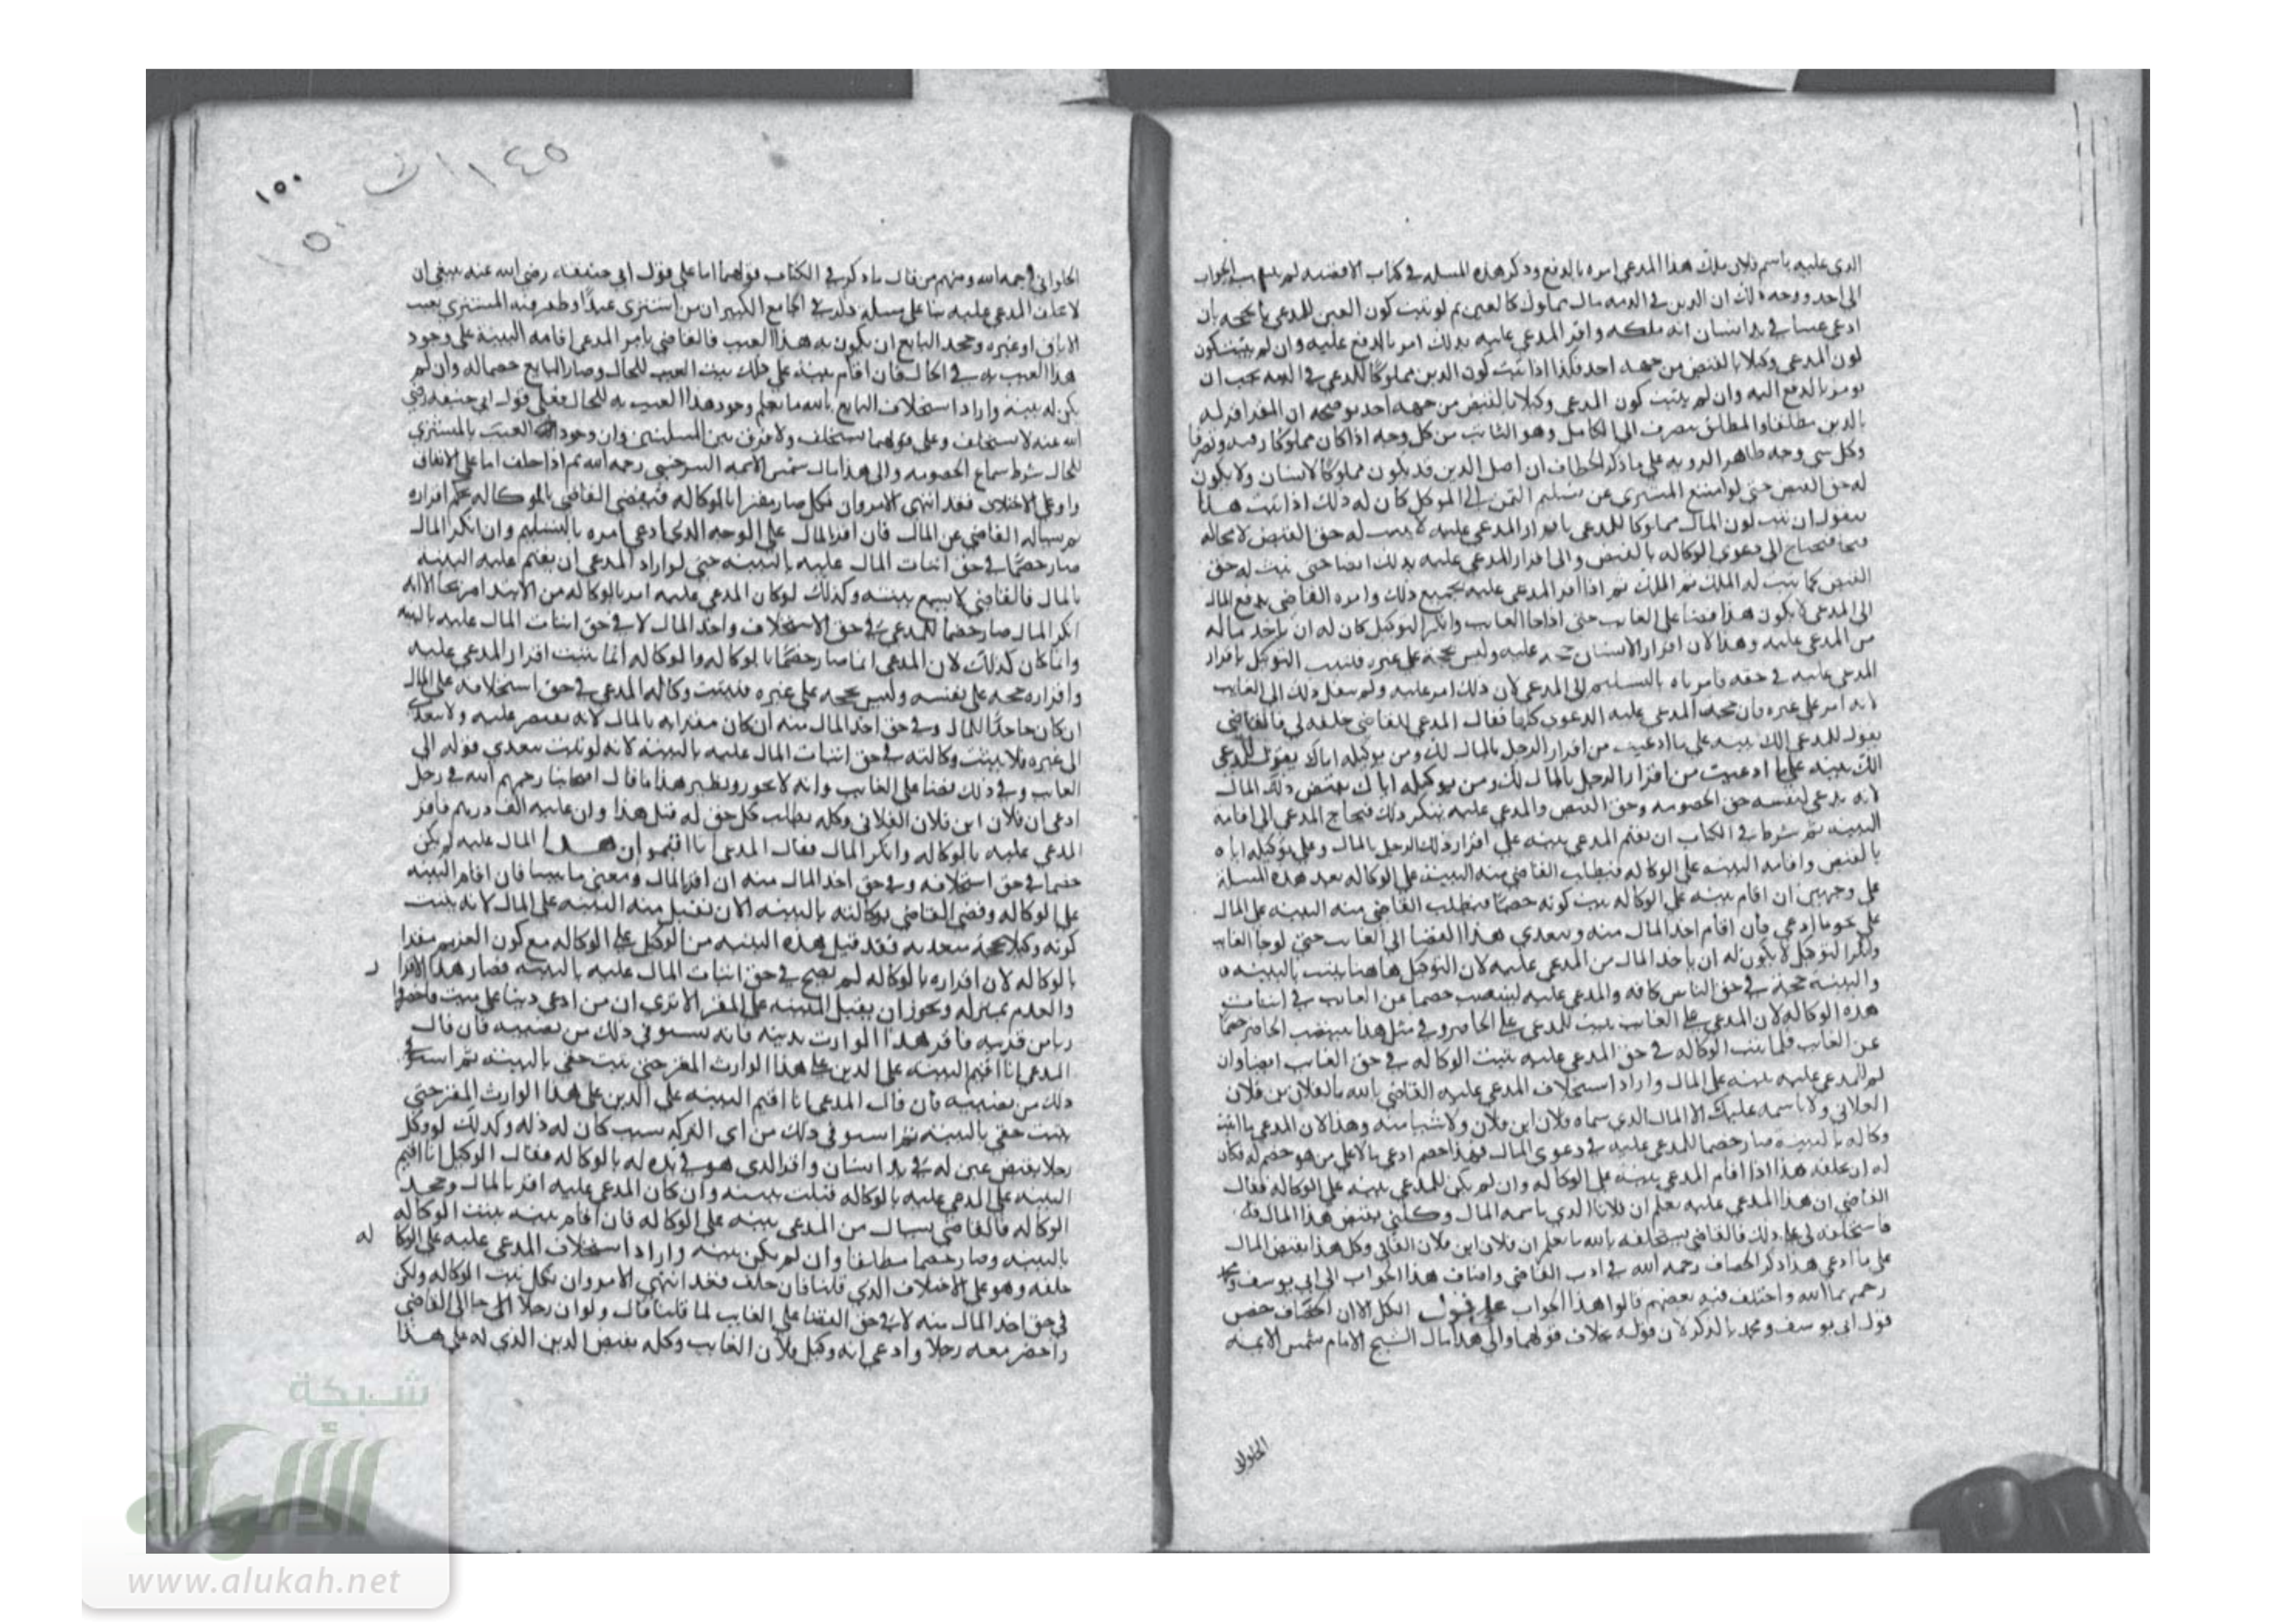 الذي عليه باسم فلان ملك هذا المدعي امره بالدفع وذكر هذه المسله في كتاب الاقضيه لم ينسب الجواب
الى احد ووجه ذلك ان الدين في الذمه مال مملوك كالعين ثم لو ثبت كون العين للمدعي بالحجه بان
ادعى عينا في يد انسان انه ملكه واقر المدعى عليه بذلك امر بالدفع عليه وان لم يثبت كون
كون المدعي وكيلا بالقبض من جهه احد فكذا اذا ثبت كون الدين مملوكا للمدعي في الذمه يجب ان
يومر بالدفع اليه وان لم يثبت كون المدعي وكيلا بالقبض من جهه احد يوضحه ان المقر اقر له
بالدين مطلقا والمطلق ينصرف الى الكامل وهو الثابت من كل وجه اذا كان مملوكا رقبه وتصرفا
وكل شي وجه ظاهر الروايه على ما ذكر الخصاف ان اصل الدين قد يكون مملوكا لانسان ولا يكون
له حق القبض حتى لو امتنع المشتري عن تسليم الثمن الى الموكل كان له ذلك اذا ثبت هذا
فنقول ان ثبت كون المال مملوكا للمدعي باقرار المدعى عليه لا يثبت له حق القبض لا محاله
فيحتاج الى دعوى الوكاله بالقبض والى اقرار المدعى عليه بذلك ايضا حتى يثبت له حق
القبض كما يثبت له الملك ثم اذا اقر المدعى عليه بجميع ذلك وامره القاضي بدفع المال
الى المدعي لا يكون هذا قضا على الغايب حتى اذا جا الغايب وانكر التوكيل كان له ان ياخذ ماله
من المدعى عليه وهذا لان اقرار الانسان حجه عليه وليس بحجه على غيره فيثبت التوكيل باقرار
المدعى عليه في حقه فامرناه بالتسليم الى المدعي لان ذلك امر عليه ولم ينفذ ذلك الى الغايب
لانه امر على غيره فان جحد المدعى عليه الدعوى كلها فقال المدعي للقاضي حلفه لي فالقاضي
يقول للمدعي الك بينه على ما ادعيت من اقرار الرجل بالمال لك ومن توكيله اياك يقول للمدعي
الك بينه على ما ادعيت من اقرار الرجل بالمال لك ومن توكيله اياك بقبض ذلك المال
لانه يدعي لنفسه حق الخصومه وحق القبض والمدعى عليه ينكر ذلك فيحتاج المدعي الى اقامه
البينه ثم شرط في الكتاب ان يقيم المدعي بينه على اقرار ذلك الرجل بالمال وعلى توكيله اياه
بالقبض واقامه البينه على الوكاله فيطلب القاضي منه البينه على الوكاله بعد هذه المسله
على وجهين ان اقام بينه على الوكاله يثبت كونه خصما فيطلب القاضي منه البينه على المال
على نحو ما ادعى فان اقام اخذ المال منه ويتعدى هذا القضا الى الغايب حتى لو جا الغايب
وانكر التوكيل لا يكون له ان ياخذ المال من المدعى عليه لان التوكيل هاهنا يثبت بالبينه
والبينه حجه في حق الناس كافه والمدعى عليه لينتصب خصما عن الغايب في اثبات
هذه الوكاله لان المدعي على الغايب يثبت للمدعي على الحاضر وفي مثل هذا ينتصب الحاضر خصما
عن الغايب فلما ثبتت الوكاله في حق المدعى عليه يثبت الوكاله في حق الغايب ايضا وان
لم للمدعى عليه بينه على المال واراد استحلاف المدعى عليه القاضي بالله ما لفلان بن فلان
الفلاني ولا باسمه عليك الا المال الذي سماه فلان ابن فلان ولا شيا منه وهذا لان المدعي بااثبت
وكاله بالبينه صار خصما للمدعى عليه في دعوى المال فهذا خصم ادعى بالاعلى من هو خصم له فكان
له ان يحلفه هذا اذا اقام المدعي بينه على الوكاله وان لم يكن للمدعي بينه على الوكاله فقال
القاضي ان هذا المدعى عليه يعلم ان فلانا الذي باسمه المال وكلني بقبض هذا المال منه
فاستحلفه لي على ذلك فالقاضي يستحلفه بالله ما يعلم ان فلان ابن فلان الفلاني وكل هذا بقبض المال
على ما ادعى هذا ذكر الخصاف رحمه الله في ادب القاضي واضاف هذا الجواب الى ابي يوسف ومحمد
رحمهما الله واختلف فيه بعضهم قالوا هذا الجواب على قول الكل الا ان الخصاف خص
قول ابي يوسف ومحمد بالذكر لان قوله بخلاف قولهما والى هذا مال الشيخ الامام شمس الايمه
الحلواني
١٤٥
١٥٠
١٥٠
الحلواني رحمه الله ومنهم من قال ما ذكر في الكتاب قولهما اما على قول ابي حنيفه رضي الله عنه ينبغي ان
لا يحلف المدعى عليه بنا على مسله ذكرت في الجامع الكبير ان من اشترى عبدا وطعن فيه المشتري بعيب
الاباق او غيره وجحد البايع ان يكون به هذا العيب فالقاضي يامر المدعي اقامه البينه على وجود
هذا العيب به في الحال فان اقام بينه على ذلك يثبت العيب للحال وصار البايع خصما له وان لم
يكن له بينه واراد استحلاف البايع بالله ما يعلم وجود هذا العيب به للحال فعلى قول ابي حنيفه رضي
الله عنه لا يستحلف وعلى قولهما يستحلف ولا فرق بين المسلتين فان وجود العيب بالمشتري
للحال شرط سماع الخصومه والى هذا مال شمس الايمه السرخسي رحمه الله ثم اذا حلف اما على الاتفاق
او على الاختلاف فقد انتهى الامر وان نكل صار مقرا بالوكاله فيقضي القاضي بالوكاله بحكم اقراره
ثم يساله القاضي عن المال فان اقر بالمال على الوجه الذي ادعي امره بالتسليم وان انكر المال
صار خصما في حق اثبات المال عليه بالبينه حتى لو اراد المدعي ان يقيم عليه البينه
بالمال فالقاضي لا يسمع بينته وكذلك لو كان المدعى عليه اقر بالوكاله من الابتدا صريحا الا انه
انكر المال صار خصما للمدعي في حق الاستحلاف واخذ المال لا في حق اثبات المال عليه بالبينه
وانما كان كذلك لان المدعي انما صار خصما بالوكاله والوكاله انما يثبت اقرار المدعى عليه
واقراره حجه على نفسه وليس بحجه على غيره فيثبت وكاله المدعي في حق استحلافه على المال
ان كان جاحدا للمال وفي حق اخذ المال منه ان كان مقرا به بالمال لانه يقتصر عليه ولا يتعدى
الى غيره فلا يثبت وكالته في حق اثبات المال عليه بالبينه لانه لو ثبت يتعدى قوله الى
الغايب وفي ذلك قضا على الغايب وانه لا يجوز ونظير هذا ما قال اصحابنا رحمهم الله في رجل
ادعى ان فلان ابن فلان الفلاني وكله بطلب كل حق له قبل هذا وان عليه الف درهم فاقر
المدعى عليه بالوكاله وانكر المال فقال المدعي انا اقيم ان هذا المال عليه لم يكن
خصما في حق استحلافه وفي حق اخذ المال منه ان اقر بالمال ومعنى ما بينا فان اقام البينه
على الوكاله وقضى القاضي بوكالته بالبينه الان تقبل منه البينه على المال لانه يثبت
كونه وكيلا بحجه متعديه فقد قبل هذه البينه من الوكيل على الوكاله مع كون الغريم مقرا
بالوكاله لان اقراره بالوكاله لم يصح في حق اثبات المال عليه بالبينه فصار هذا الاقرار
والعدم بمنزله ويجوز ان يقبل البينه على المقر الا ترى ان من ادعى دينا على ميت واحضر
وارثا من قرابته فاقر هذا الوارث بدينه فانه يستوفي ذلك من نصيبه فان قال
المدعي انا اقيم البينه على الدين على هذا الوارث المقر حتى يثبت حقي بالبينه ثم استوفي
ذلك من نصيبه فان قال المدعي انا اقيم البينه على الدين على هذا الوارث المقر حتى
يثبت حقي بالبينه ثم استوفي ذلك من اي التركه سبب كان له ذلك وكذلك لو وكل
رجلا بقبض عين له في يد انسان واقر الذي هو في يده له بالوكاله فقال الوكيل انا اقيم
البينه على المدعى عليه بالوكاله قبلت بينته وان كان المدعى عليه اقر بالمال وجحد
الوكاله فالقاضي يسال من المدعي بينه على الوكاله فان اقام بينه يثبت الوكاله
بالبينه وصار خصما مطلقا وان لم يكن بينه واراد استحلاف المدعى عليه على الوكاله
حلفه وهو على الاختلاف الذي قلنا فان حلف فقد انتهى الامر وان نكل يثبت الوكاله ولكن
في حق اخذ المال منه لا في حق القضا على الغايب لما قلنا قال ولو ان رجلا جا الى القاضي
واحضر معه رجلا وادعى انه وكيل فلان الغايب وكله بقبض الدين الذي له على هذا
شبكة
الألوكة
www.alukah.net